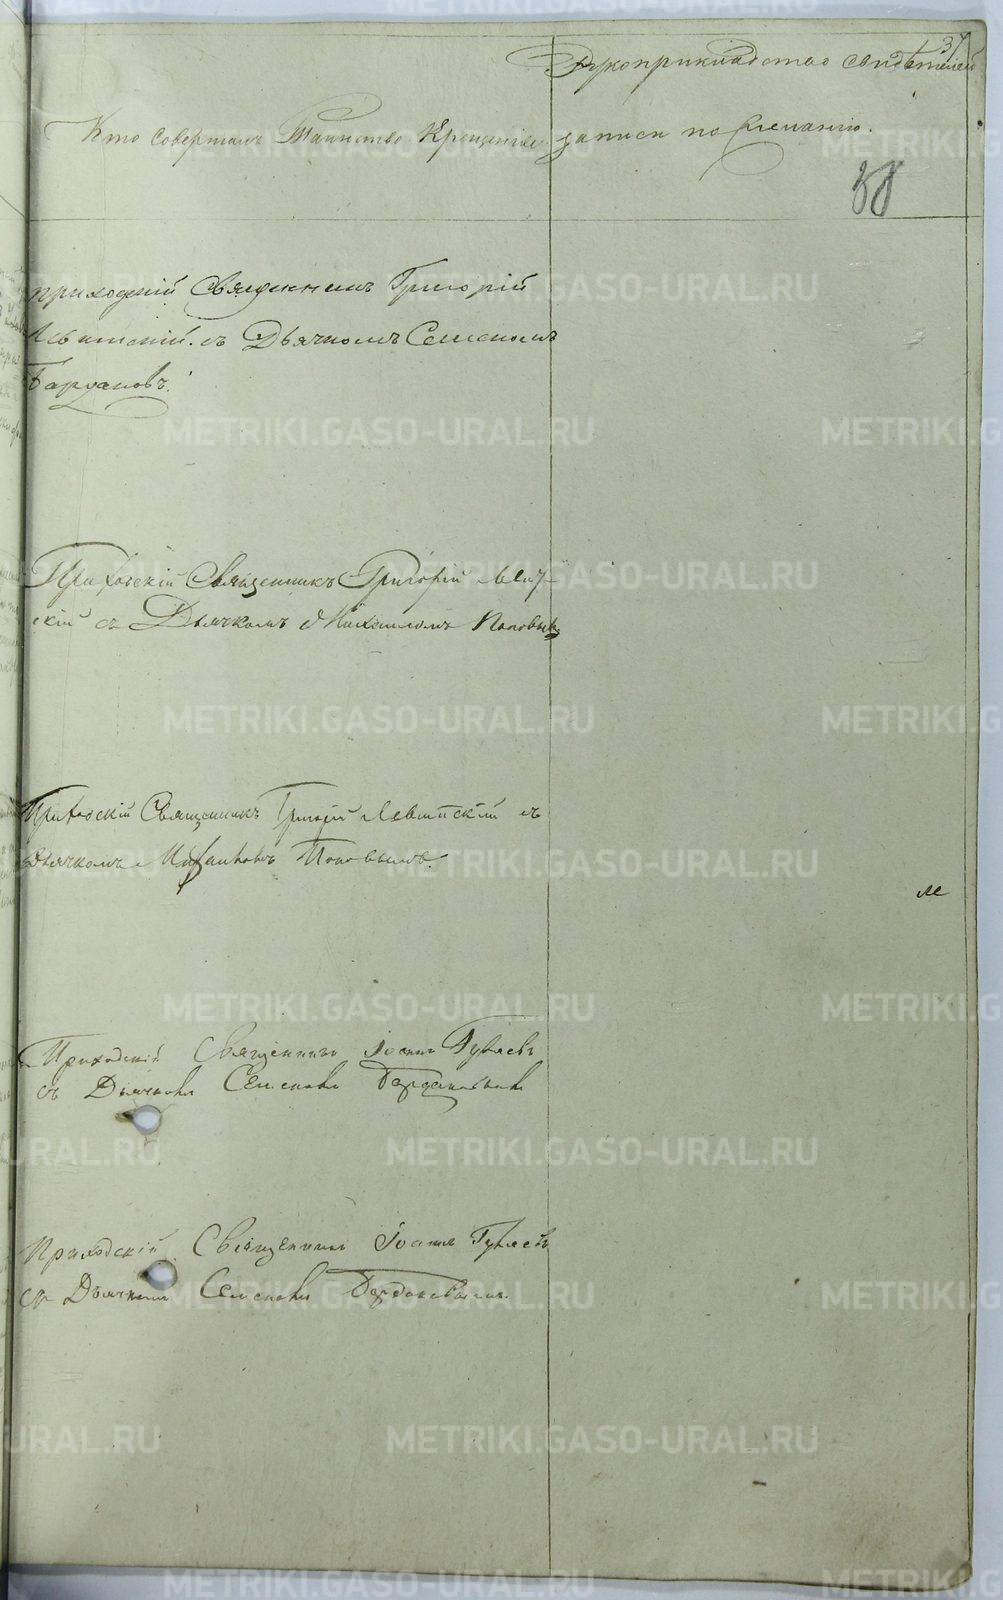 37
Рукоприкладство свидѣтелей
Кто совершалъ Таинство Крещенія
записи по желанію.
38
приходскій Священникъ Григорій
Левитскій. съ Дьячкомъ Семеномъ
Бардаковъ.
Приходскій Священникъ Григорій Левит-
скій съ Дьячкомъ Михаиломъ Поповымъ
Приходскій Священникъ Григорій Левитскій съ
дьячкомъ Михаиломъ Поповымъ.
Приходскій Священникъ Іоаннъ Гуляевъ
съ Дьячкомъ Семеномъ Бардаковымъ
Приходскій Священникъ Іоаннъ Гуляевъ
съ Дьячкомъ Семеномъ Бардаковымъ.
METRIKI.GASO-URAL.RU